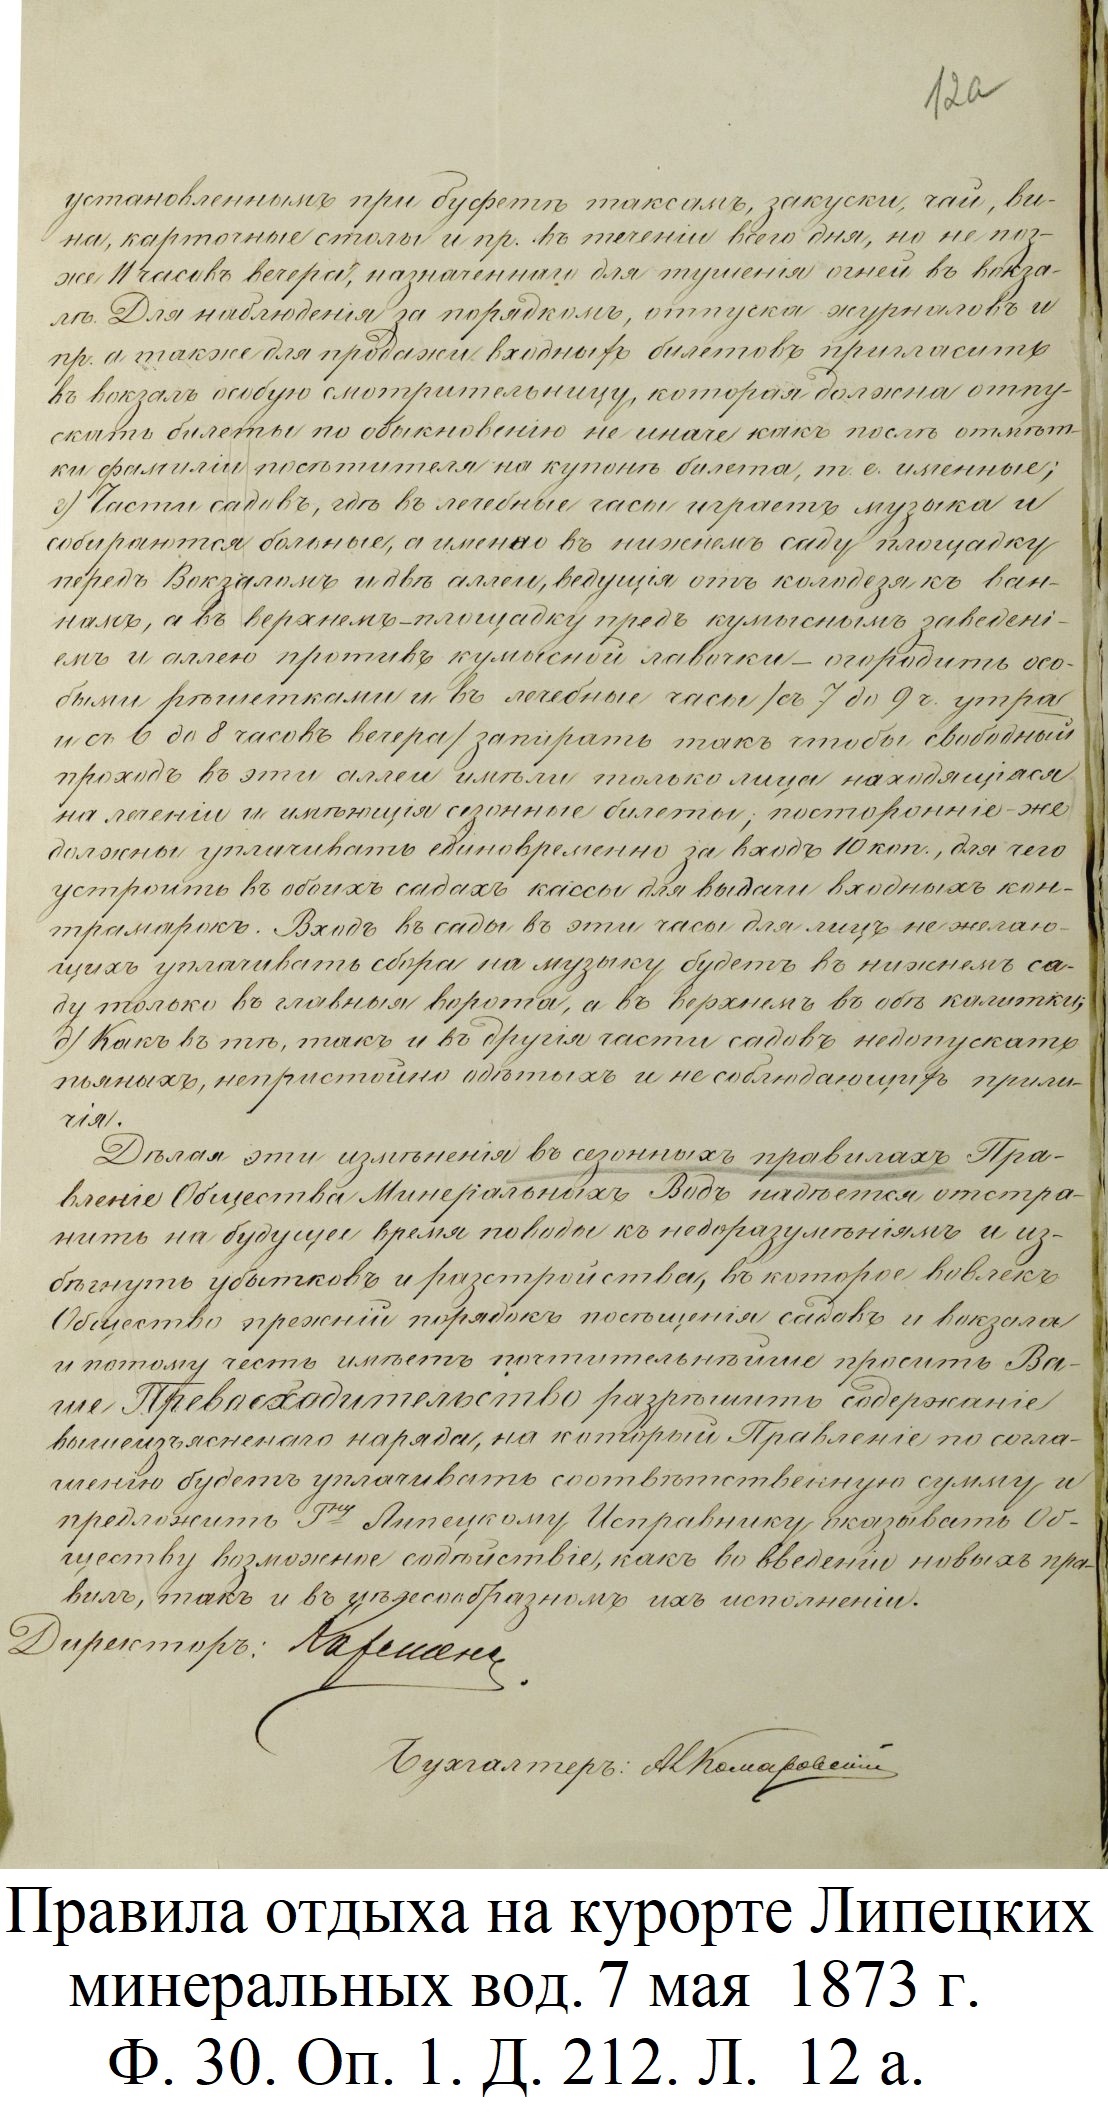 12а
установленнымъ при буфетѣ таксамъ, закуски, чай, ви-
на, карточные столы и пр. въ теченіи всего дня, но не поз-
же 11 часовъ вечера, назначеннаго для тушенія огней въ вокза-
лѣ. Для наблюденія за порядкомъ, отпуска журналовъ и
пр. а также для продажи входныхъ билетовъ пригласить
въ вокзалъ особую смотрительницу, которая должна отпу-
скать билеты по обыкновенію не иначе какъ послѣ отмѣт-
ки фамиліи посѣтителя на купонѣ билета, т. е. именные;
г) Части садовъ, гдѣ въ лечебные часы играетъ музыка и
собираются больные, а именно въ нижнемъ саду площадку
передъ Вокзаломъ и двѣ аллеи, ведущія отъ колодезя къ ван-
намъ, а въ верхнемъ – площадку предъ кумыснымъ заведені-
емъ и аллею противъ кумысной лавочки – огородить осо-
быми рѣшетками и въ лечебные часы /съ 7 до 9 ч. утра
и съ 6 до 8 часовъ вечера/ запирать такъ чтобы свободный
проходъ въ эти аллеи имѣли только лица находящіяся
на леченіи и имѣющія сезонные билеты; посторонніе-же
должны уплачивать единовременно за входъ 10 коп., для чего
устроить въ обоихъ садахъ кассы для выдачи входныхъ кон-
трамарокъ. Входъ въ сады въ эти часы для лицъ не желаю-
щихъ уплачивать сбора на музыку будетъ въ нижнемъ са-
ду только въ главныя ворота, а въ верхнемъ въ обѣ калитки;
д) Какъ въ тѣ, такъ и въ другія части садовъ недопускать
пьяныхъ, непристойно одѣтыхъ и не соблюдающихъ прили-
чія.
Дѣлая эти измѣненія въ сезонныхъ правилахъ Пра-
вленіе Общества Минеральныхъ Водъ надѣется отстра-
нить на будущее время поводы къ недоразумѣніямъ и из-
бѣгнуть убытковъ и разстройства, въ которое вовлекъ
Общество прежній порядокъ посѣщенія садовъ и вокзала
и потому честь имѣетъ почтительнѣйше просить Ва-
ше Превосходительство разрѣшить содержаніе
вышеизъясненаго наряда, на который Правленіе по согла-
шенію будетъ уплачивать соотвѣтственную сумму и
предложить Гну Липецкому Исправнику оказывать Об-
ществу возможное содѣйствіе, какъ во введеніи новыхъ пра-
вилъ, такъ и въ цѣлесообразномъ ихъ исполненіи.
Директоръ:
Бухгалтеръ: А Комаровскій
Правила отдыха на курорте Липецких
минеральных вод. 7 мая 1873 г.
Ф. 30. Оп. 1. Д. 212. Л. 12 а.